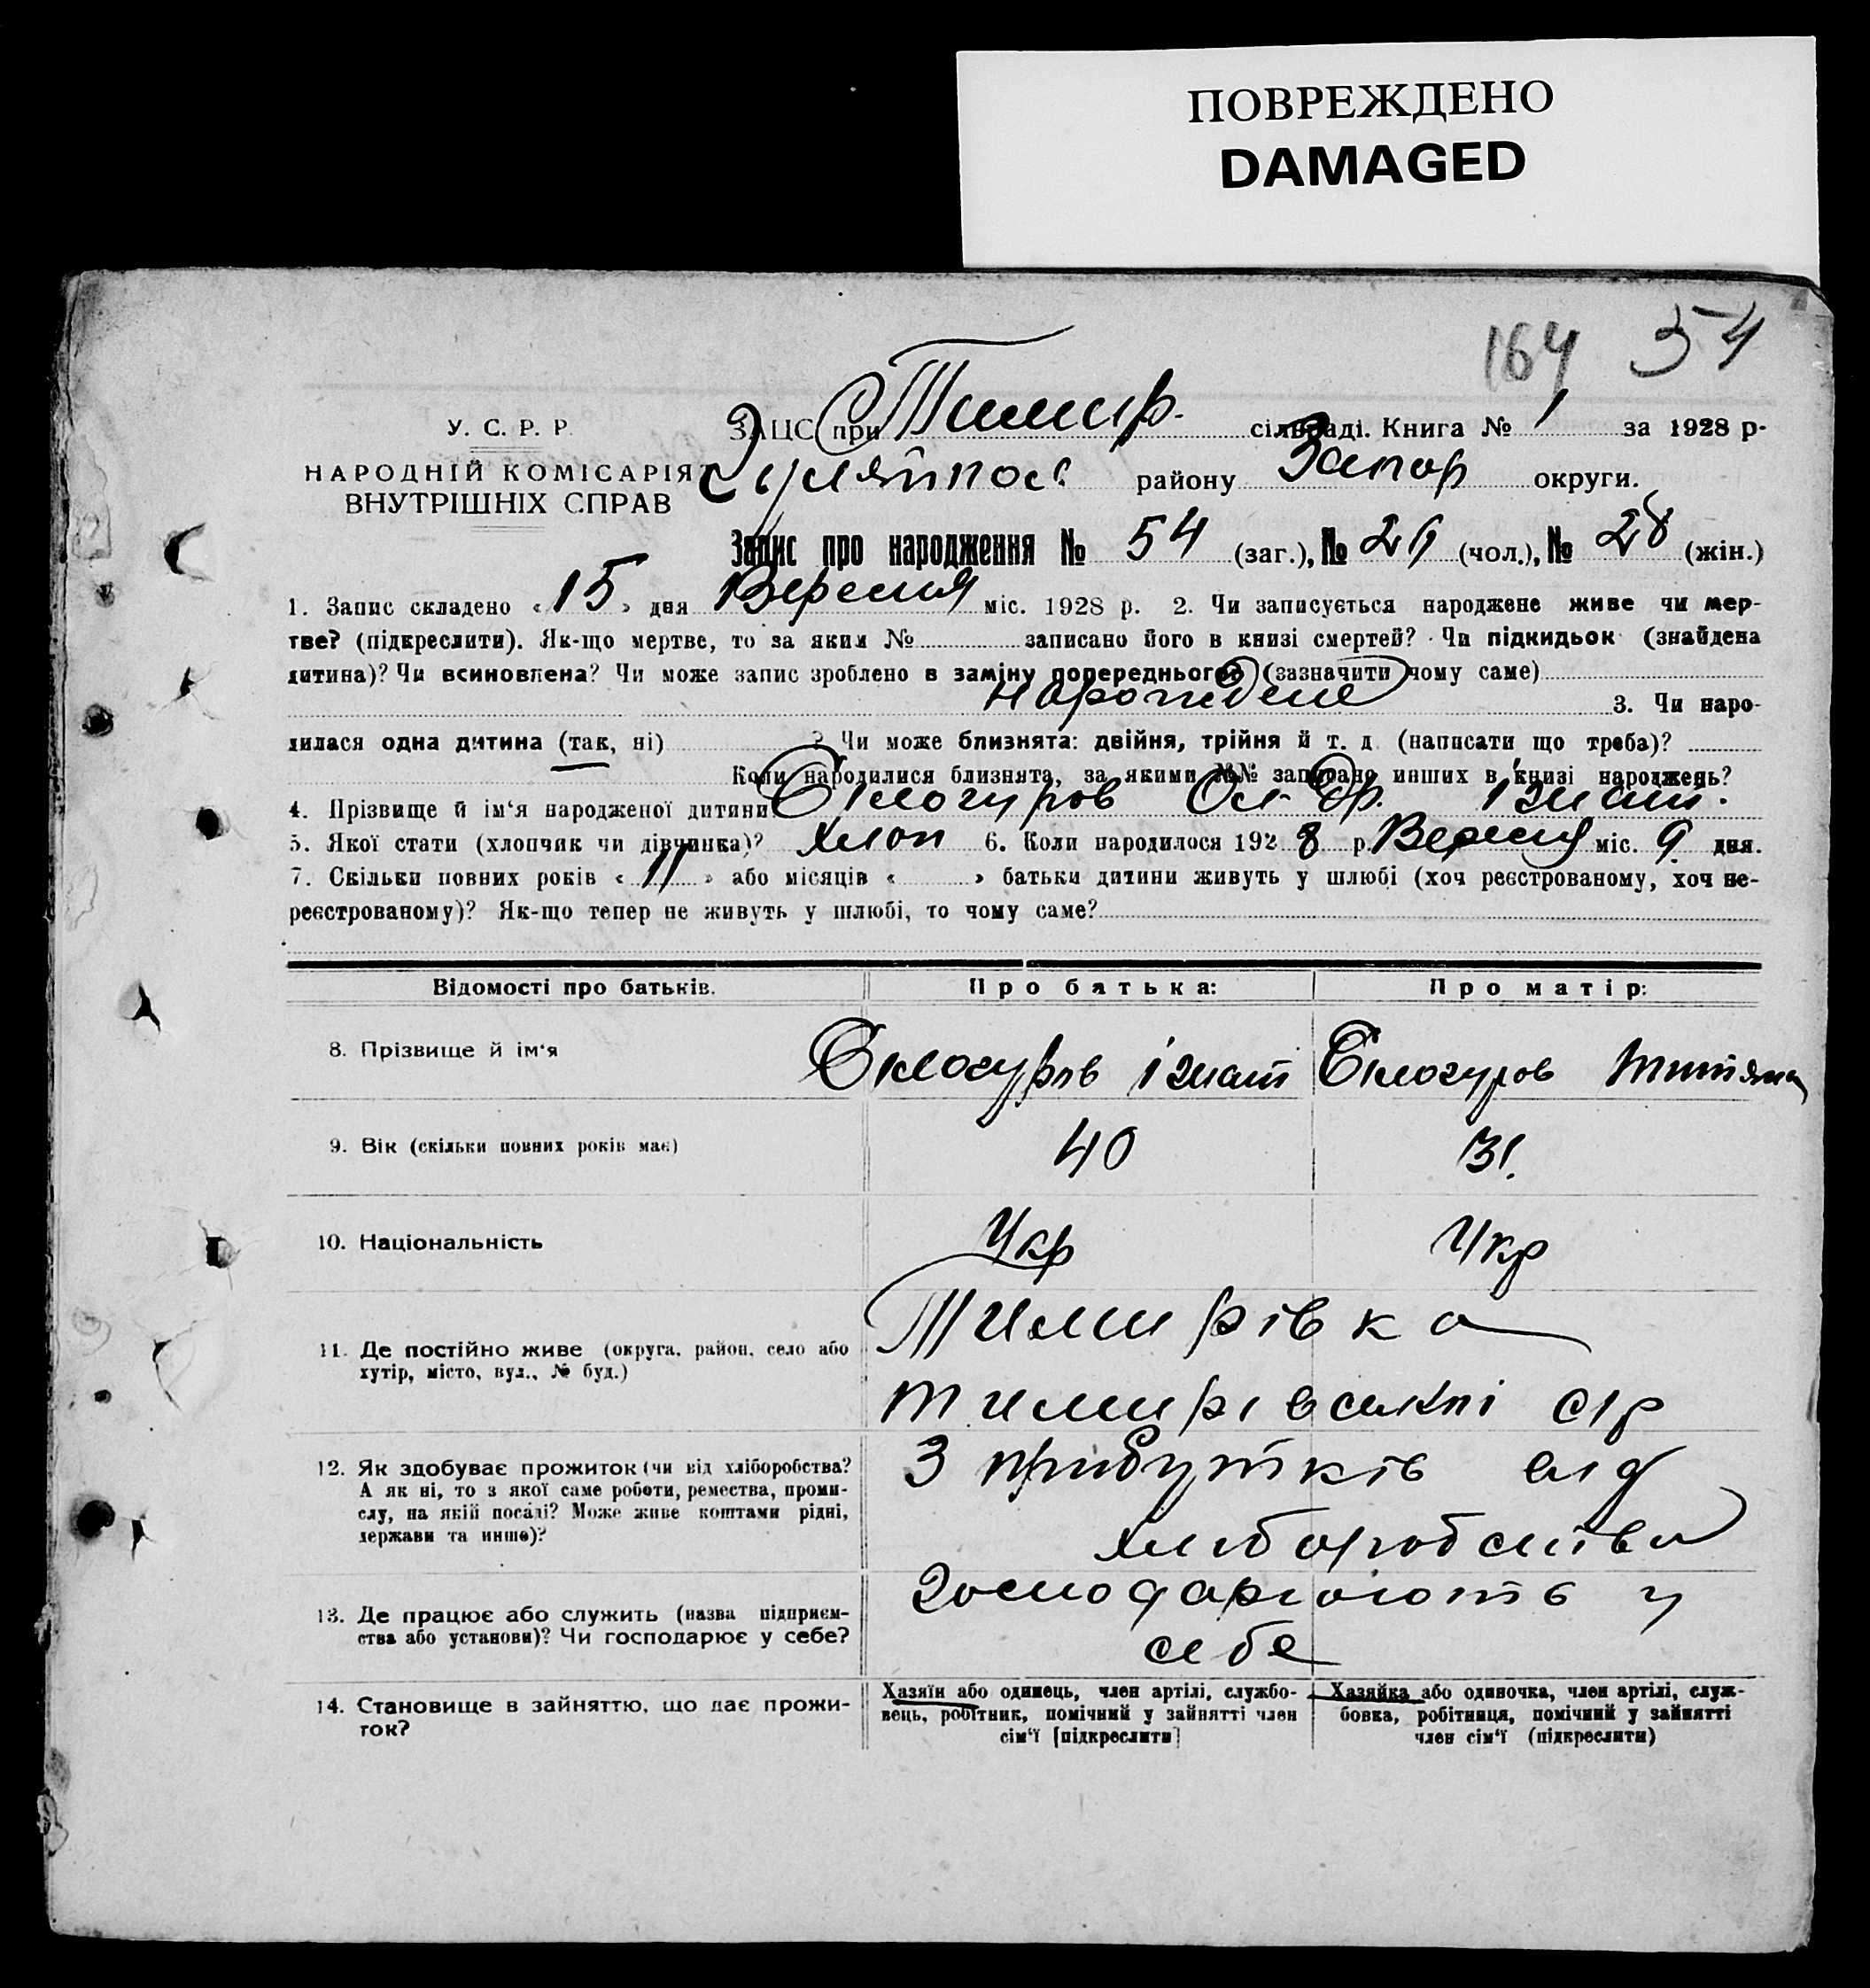 ПОВРЕЖДЕНО
DAMAGED
164 54
У. С. Р. Р.
НАРОДНІЙ КОМІСАРІЯТ
ВНУТРІШНІХ СПРАВ
ЗАЦС при Тимир. сільраді. Книга № 1 за 1928 р.
Гуляйпол району Запор округи.
Запис про народження № 54 (заг.), № 26 (чол.), № 28 (жін.)
1. Запис складено «15» дня Вересня міс. 1928 р. 2. Чи записується народжене живе чи мер-
тве? (підкреслити). Як-що мертве, то за яким № записано його в книзі смертей? Чи підкидьок (знайдена
дитина)? Чи всиновлена? Чи може запис зроблено в заміну попереднього (зазначити чому саме)
народжене 3. Чи наро-
дилася одна дитина (так, ні) ? Чи може близнята: двійня, трійня й т. д. (написати що треба)?
Коли народилися близнята, за якими №№ записано инших в книзі народжень?
4. Прізвище й ім'я народженої дитини Білогуров Ігнат.
5. Якої стати (хлопчик чи дівчинка)? хлоп 6. Коли народилося 1928 р. Вересня міс. 9 дня.
7. Скільки повних років «11» або місяців « » батьки дитини живуть у шлюбі (хоч реєстрованому, хоч не-
реєстрованому)? Як-що тепер не живуть у шлюбі, то чому саме?
Відомості про батьків. Про батька: Про матір:
8. Прізвище й ім'я Білогуров Ігнат Білогуров Титяна
9. Вік (скільки повних років має) 40 31.
10. Національність Укр Укр
11. Де постійно живе (округа, район, село або
хутір, місто, вул., № буд.)
Тимирівка
Тимирівській с/р
12. Як здобуває прожиток (чи від хліборобства?
А як ні, то з якої саме роботи, ремества, проми-
слу, на якій посаді? Може живе коштами рідні,
держави та инше)?
З прибутків від
хліборобства
13. Де працює або служить (назва підприєм-
ства або установи)? Чи господарює у себе?
господарюють у
себе
14. Становище в зайняттю, що дає прожи-
ток?
Хазяїн або одинець, член артілі, службо-
вець, робітник, помічний у зайнятті член
сім'ї [підкреслити]
Хазяйка або одиночка, член артілі, служ-
бовка, робітниця, помічний у зайнятті
член сім'ї (підкреслити)